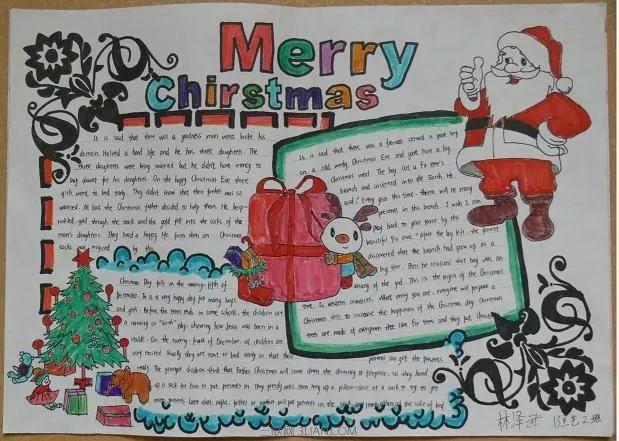 Merry
Chirstmas
It is said that there was a goodness man went broke his
domain. He lived a hard life and he has three daughters. The
three daughters were being married but he didn't have money to
buy dowset for his daughters. On the happy Christmas Eve three
girls went to bed early. They didn't know that their father was so
worried. At last the Christmas father decided to help them. He
gold through the sock and the gold fell into the socks of the
man's daughters. They lived a happy life from then on. Christmas
socks was by this.
It is said that there was a farmer served a poor boy
on a cold windy Christmas Eve and gave him a big
Christmas meal. The boy cut a fir tree's
branch and inserted into the Earth. He
said: "Every year this time, there will be many
presents in this branch. I wish I can
pay back to your favor by this
beautiful fir ove." After the boy left, the farmer
discovered that the branch had grew up as a
big tree. Then he realized that boy was an
envoy of the god. This is the origin of the Christmas
tree. In western countries, What envoy you are, everyone will prepare a
Christmas tree to increase the happiness of the Christmas day. Christmas
trees are made of evergreen tree like Fir trees and they put
Christmas Day falls on the twenty-fifth of
December. It is a very happy day for many boys
and girls. Before the term ends in some schools, the children act
a nativity or "birth" play, showing how Jesus was born in a
stable. On the twenty-fourth of December all children are
very excited. Usually they are sent to bed early so that their
parents can get the presents
ready. The younger children think that Father Christmas will come down the chimney or fireplace, so they hang
up a sock for him to put presents in. They greedy ones even hang up a pillow-case or a sack to try to get
more presents. Later that night, father or mother will put presents in the sock and leave them at the side of bed
林泽